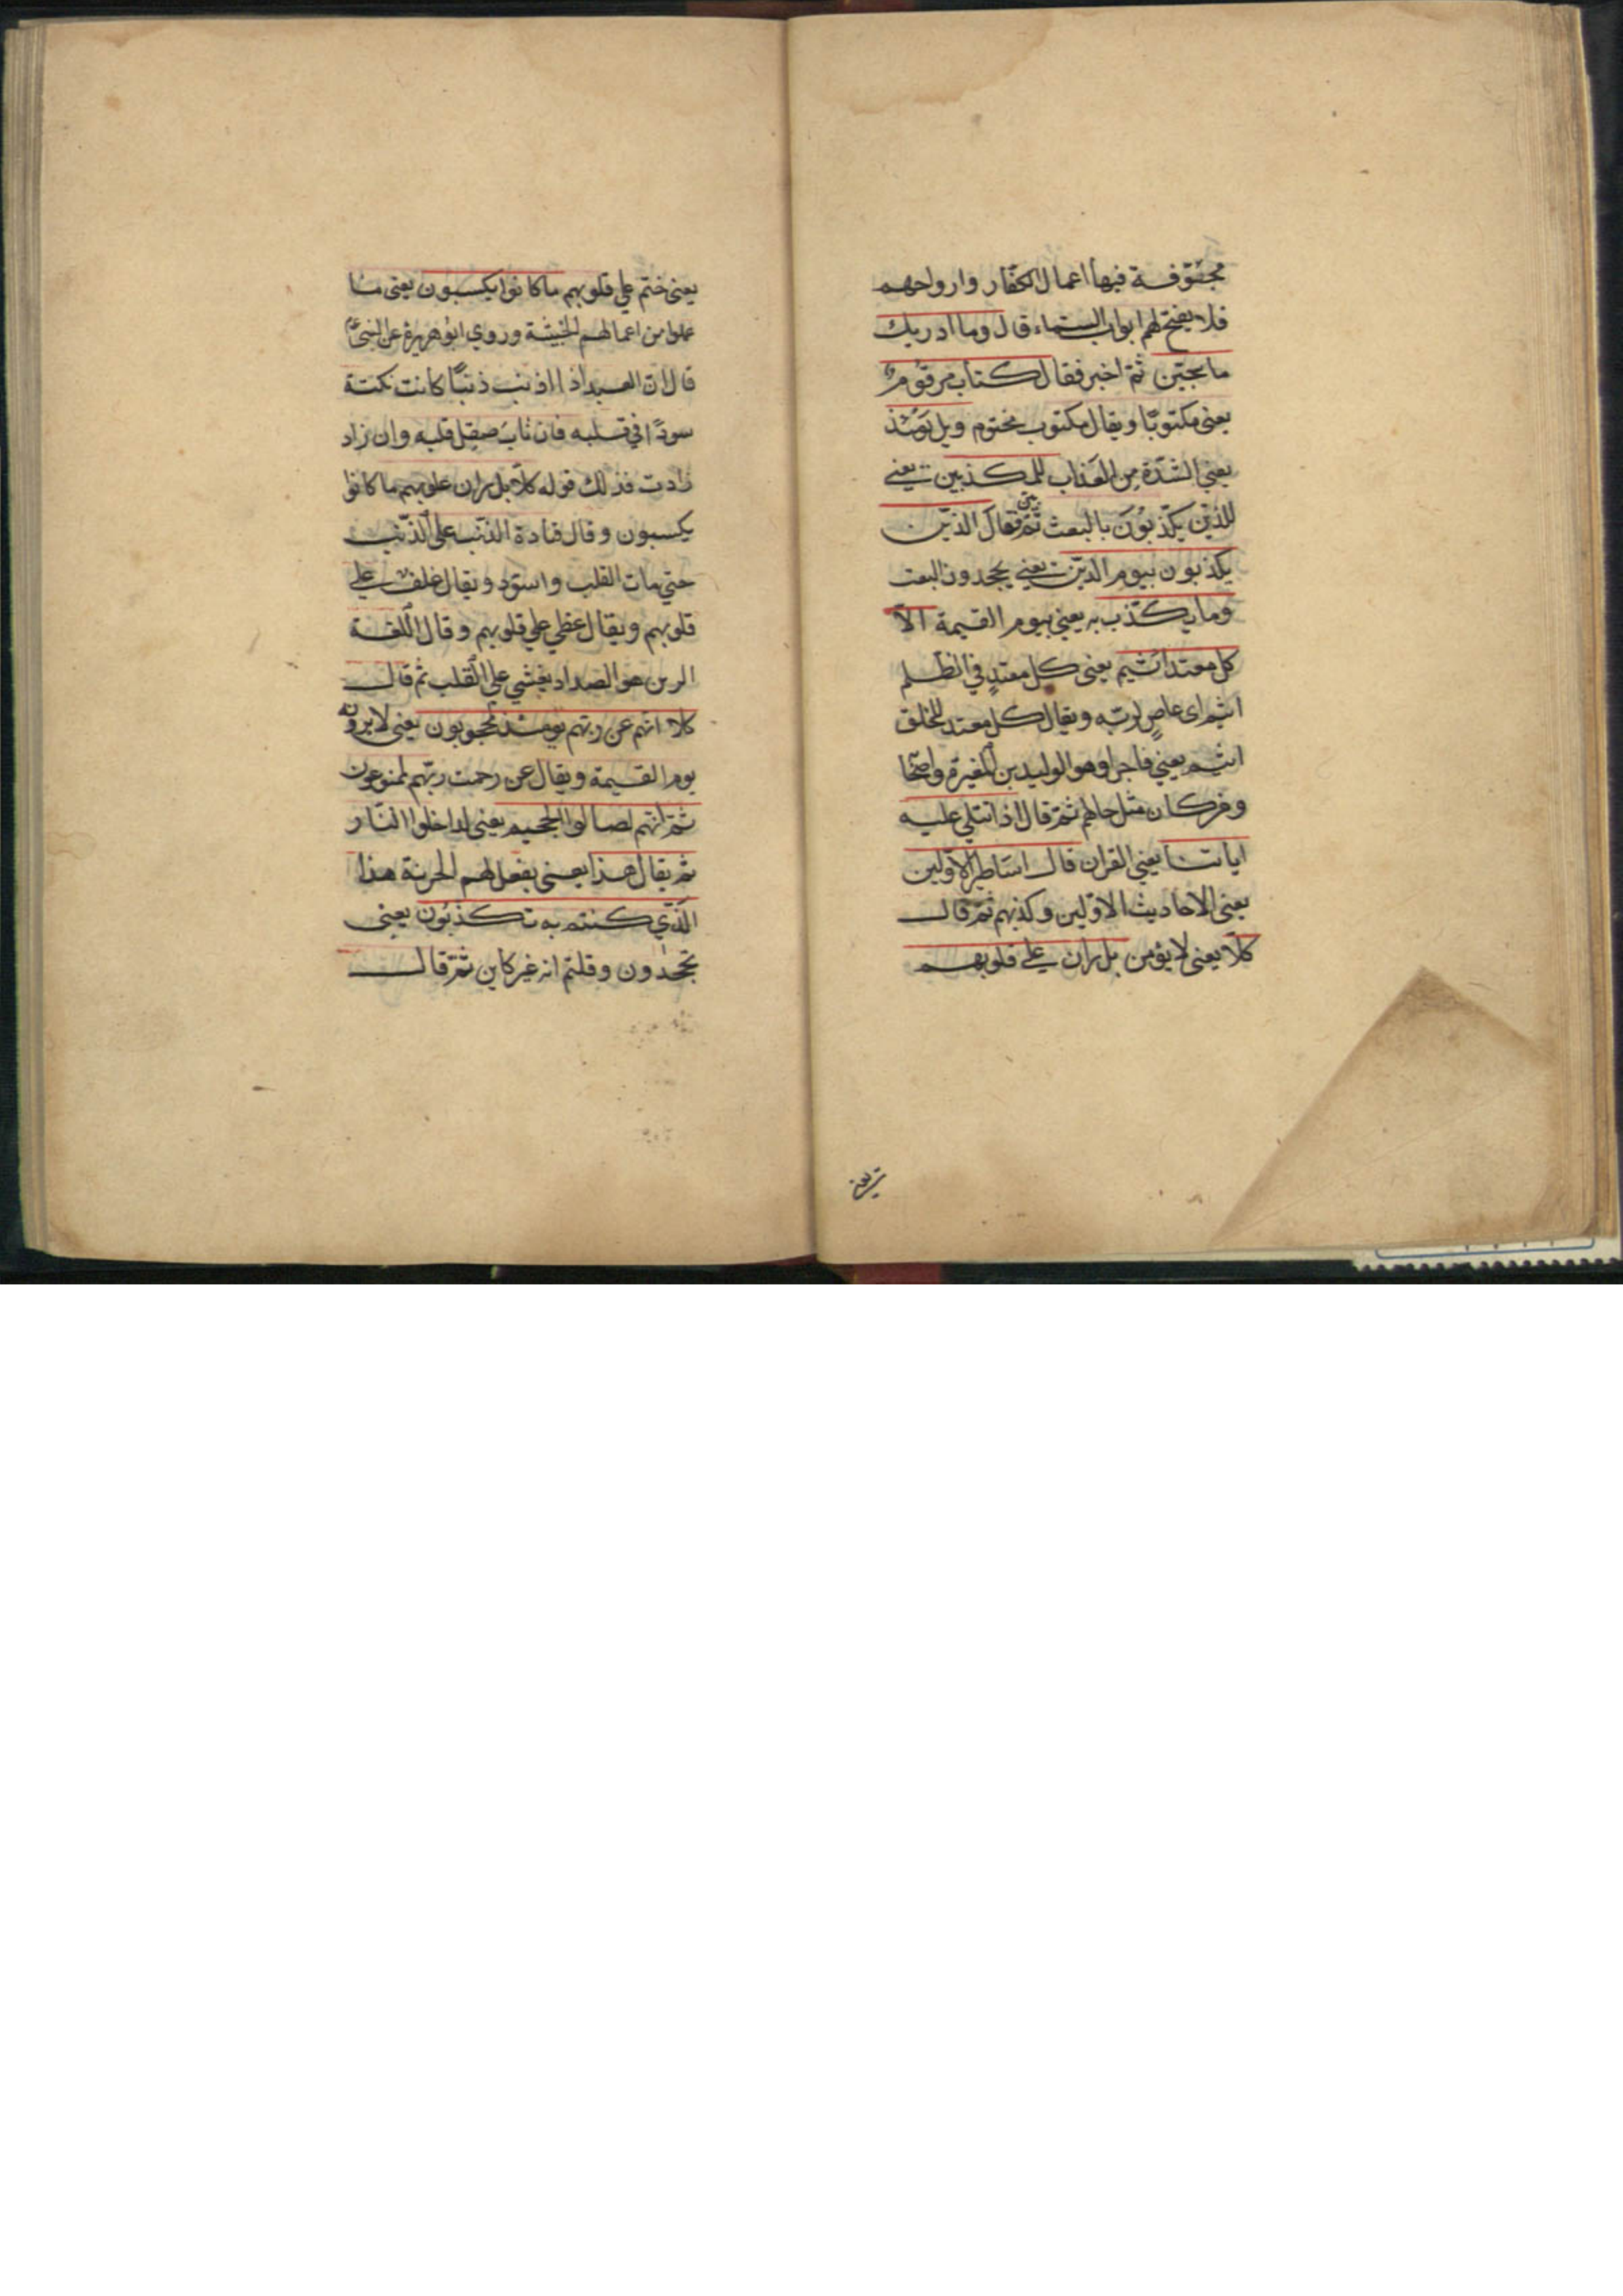 مجوّفة فيها اعمال الكفّار وارواحهم
فلا يفتح لهم ابواب السّماء قال وما ادريك
ما سجّين ثمّ اخبر فقال كتاب مرقوم
يعنى مكتوبًا ويقال مكتوب مختوم ويل يومئذ
يعني الشدّة من العذاب للمكذبين يعني
للذين يكذّبون بالبعث ثمّ بيّن فقال الذين
يكذبون بيوم الدّين يعني يجحدون البعث
وما يكذّب به يعني بيوم القيمة الاّ
كل معتد اثيم يعنى كل معتدٍ في الظلم
اثيم اى عاصٍ لربّه ويقال كل معتد للخلق
اثيم يعني فاجر وهو الوليد بن المغيرة واصحا
ومن كان مثل حالهم ثمّ قال اذا تتلي عليه
اياتنا يعني القران قال اساطير الاوّلين
يعنى الاحاديث الاوّلين وكذبهم ثمّ قال
كلاّ يعنى لا يؤمن بل ران علي قلوبهم
يعنى ختم علي قلوبهم ما كانوا يكسبون يعنى ما
عملوا من اعمالهم الخبيثة وروي ابو هريرة عن النبيّ
قال ان العبد اذا اذنب ذنبًا كانت نكتة
سودًا في قلبه فان تاب صيقل قلبه وان زاد
زادت فذلك قوله كلاّ بل ران علي قلوبهم ما كانوا
يكسبون وقال قتادة الذنب علي الذّنب
حتي مات القلب واسودّ ويقال غلف علي
قلوبهم ويقال غطي علي قلوبهم وقال اللغة
الرين هو الصداد يغشي علي القلب ثم قال
كلا انهم عن ربهم يومئذ لمحجوبون يعنى لا يرونه
يوم القيمة ويقال عن رحمت ربّهم لممنوعون
ثمّ انّهم لصالوا الجحيم يعنى لداخلوا النّار
ثم يقال هذا يعنى يقول لهم الخزنة هذا
الّذي كنتم به تكذبون يعنى
تجحدون وقلتم انه غير كاين ثمّ قال